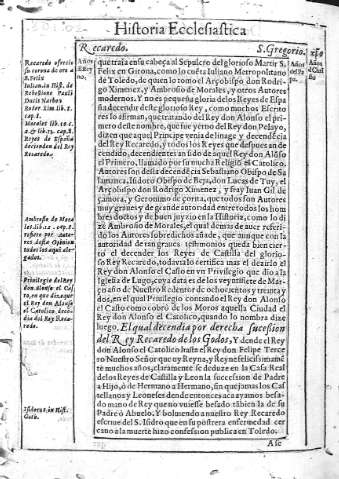 Historia Ecclesiastica
Recaredo.
S. Gregorio.
Recaredo ofrecio
su corona de oro a
S. Felix
Iulian. in Hist. de
Rebellione Pauli
Ducis Narbon
Morales lib. 12. c.
Reyes de España
decienden del Rey
Recaredo.
que traia en su cabeça al Sepulcro del glorioso Martir S.
Felix en Girona, como lo cuēta Iuliano Metropolitano
de Toledo, de quien lo tomo el Arçobispo don Rodri-
go Ximenez, y Ambrosio de Morales, y otros Autores
modernos. Y no es pequeña gloria de los Reyes de Espa-
ña decender deste glorioso Rey, como muchos Escrito
res lo afirman, que tratando del Rey don Alonso el pri-
mero deste nombre, que fue yerno del Rey don Pelayo,
dizen que aquel Principe venia de linage y decendēcia
del Rey Recaredo, y todos los Reyes que despues an de
cendido, decendientes an sido de aquel Rey don Alōso
el Primero, llamado por su mucha Religiō el Catolico.
Autores son desta decendēcia Sebastiano Obispo de Sa
lamanca, Isidoro Obispo de Beja, don Lucas de Tuy, el
Arçobispo don Rodrigo Ximenez, y fray Iuan Gil de
Çamora, y Geronimo de Çurita, que todos son Autores
muy graues y de grande autoridad entre todos los hom
bres doctos y de buen juyzio en la Historia, como lo di
ze Ambrosio de Morales, el qual demas de auer referi-
do los Autores sobredichos añade, que aunque con la
autoridad de tan graues testimonios queda bien cier-
to el decender los Reyes de Castilla del glorio-
so Rey Recaredo, todavia lo certifica mas el dezirlo el
Rey don Alonso el Casto en vn Priuilegio que dio a la
Iglesia de Lugo, cuya data es de los veyntisiete de Mar-
ço año de Nuestro Redentor de ochocientos y treinta y
dos, en el qual Priuilegio contando el Rey don Alonso
el Casto como cobrò de los Moros aquella Ciudad el
Rey don Alonso el Catolico, quando lo nombra dize
luego. El qual decendia por derecha sucesion
del Rey Recaredo de los Godos, Y dende el Rey
don Alonso el Catolico hasta el Rey don Felipe Terce
ro Nuestro Señor que oy Reyna, y Reyne felicisimamē
te muchos años, claramente se deduze en la Casa Real
de los Reyes de Castilla y Leon la succession de Padre
a Hijo, ô de Hermano a Hermano, sin que jamas los Cas
tellanos y Leoneses dende entonces aca ayamos besa-
do mano de Rey que no vuiesse besado tābien la de su
Padre ô Abuelo. Y boluiendo a nuestro Rey Recaredo
escriue del S. Isidro que en su postrera enfermedad cer
cano a la muerte hizo confession publica en Toledo.
Ase
Ambrosio de Mora
les lib. 12. cap. 8.
refiere por auto-
res desta Opinion
todos los aqui ale-
gados.
Priuilegio del Rey
don Alonso el Cas-
to, en que dize que
el Rey don Alonso
el Catolico, decen-
dia del Rey Reca-
redo.
Isidorus, in Hist.
Goth.